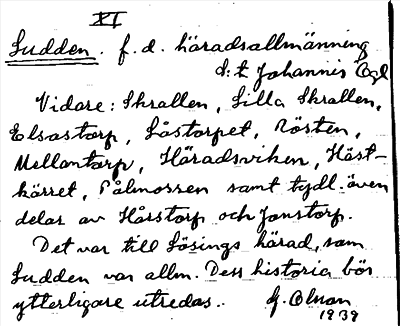 XI
Sudden. f. d. häradsallmänning
S:t Johannis Ögl
Vidare: Skrallen, Lilla Skrallen,
Elsastorp, Låstorpet, Rösten,
Mellantorp, Häradsviken, Häst-
kärret, Pålmossen samt tydl. även
delar av Hårstorp och Jonstorp.
Det var till Lösings härad, som
Sudden var allm. Dess historia bör
ytterligare utredas.
1939